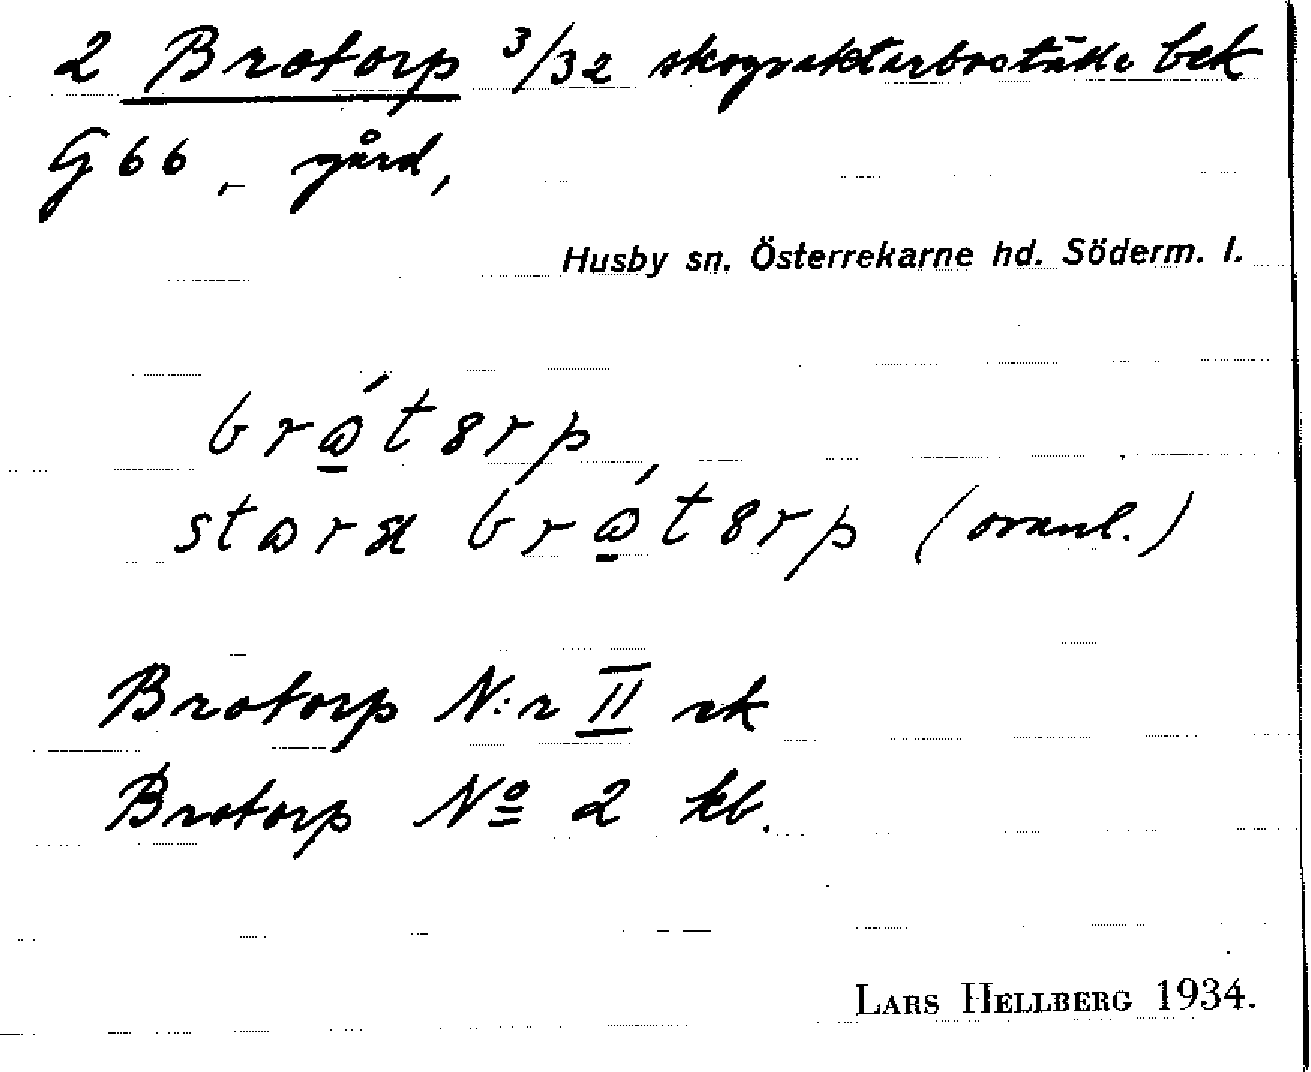 2 Brotorp 3/32 skogvaktarboställe bek
G 66, gård,
Husby sn. Österrekarne hd. Söderm. l.
brώ̲t8rp
(ovanl.)
Brotorp N:r II ek
Brotorp Nº 2 kb.
LARS HELLBERG 1934.